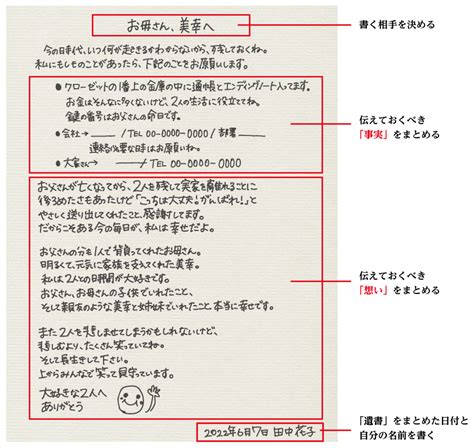 お母さん、美幸へ
書く相手を決める
今の時代、いつ何が起きるかわからないから、残しておくね。
私にもしものことがあったら、下記のことをお願いします。
● クローゼットの1番上の金庫の中に通帳とエンディングノート入ってます。
お金はそんなに多くないけど、2人の生活に役立ててね。
鍵の番号はお父さんの命日です。
● 会社→ / TEL 00-0000-0000 / 部署
連絡必要な時はお願いね。
● 大家さん→ / TEL 00-0000-0000
伝えておくべき
「事実」をまとめる
お父さんが亡くなってから、2人を残して実家を離れることに
後ろめたさもあったけど「こっちは大丈夫!がんばれ!」と
やさしく送り出してくれたこと、感謝してます。
だからこそある今の毎日が、私は幸せだよ。
お父さんの分も1人で背負ってくれたお母さん。
明るくて、元気に家族を支えてくれた美幸。
私は2人との時間が大好きです。
お父さん、お母さんの子供でいれたこと、
そして親友のような美幸と姉妹でいれたこと本当に幸せです。
また2人を悲しませてしまうかもしれないけど、
悲しむより、たくさん笑っていてね。
そして長生きして下さい。
上からみんなで笑って見守っています。
大好きな2人へ
ありがとう
伝えておくべき
「想い」をまとめる
2022年6月7日 田中花子
「遺書」をまとめた日付と
自分の名前を書く